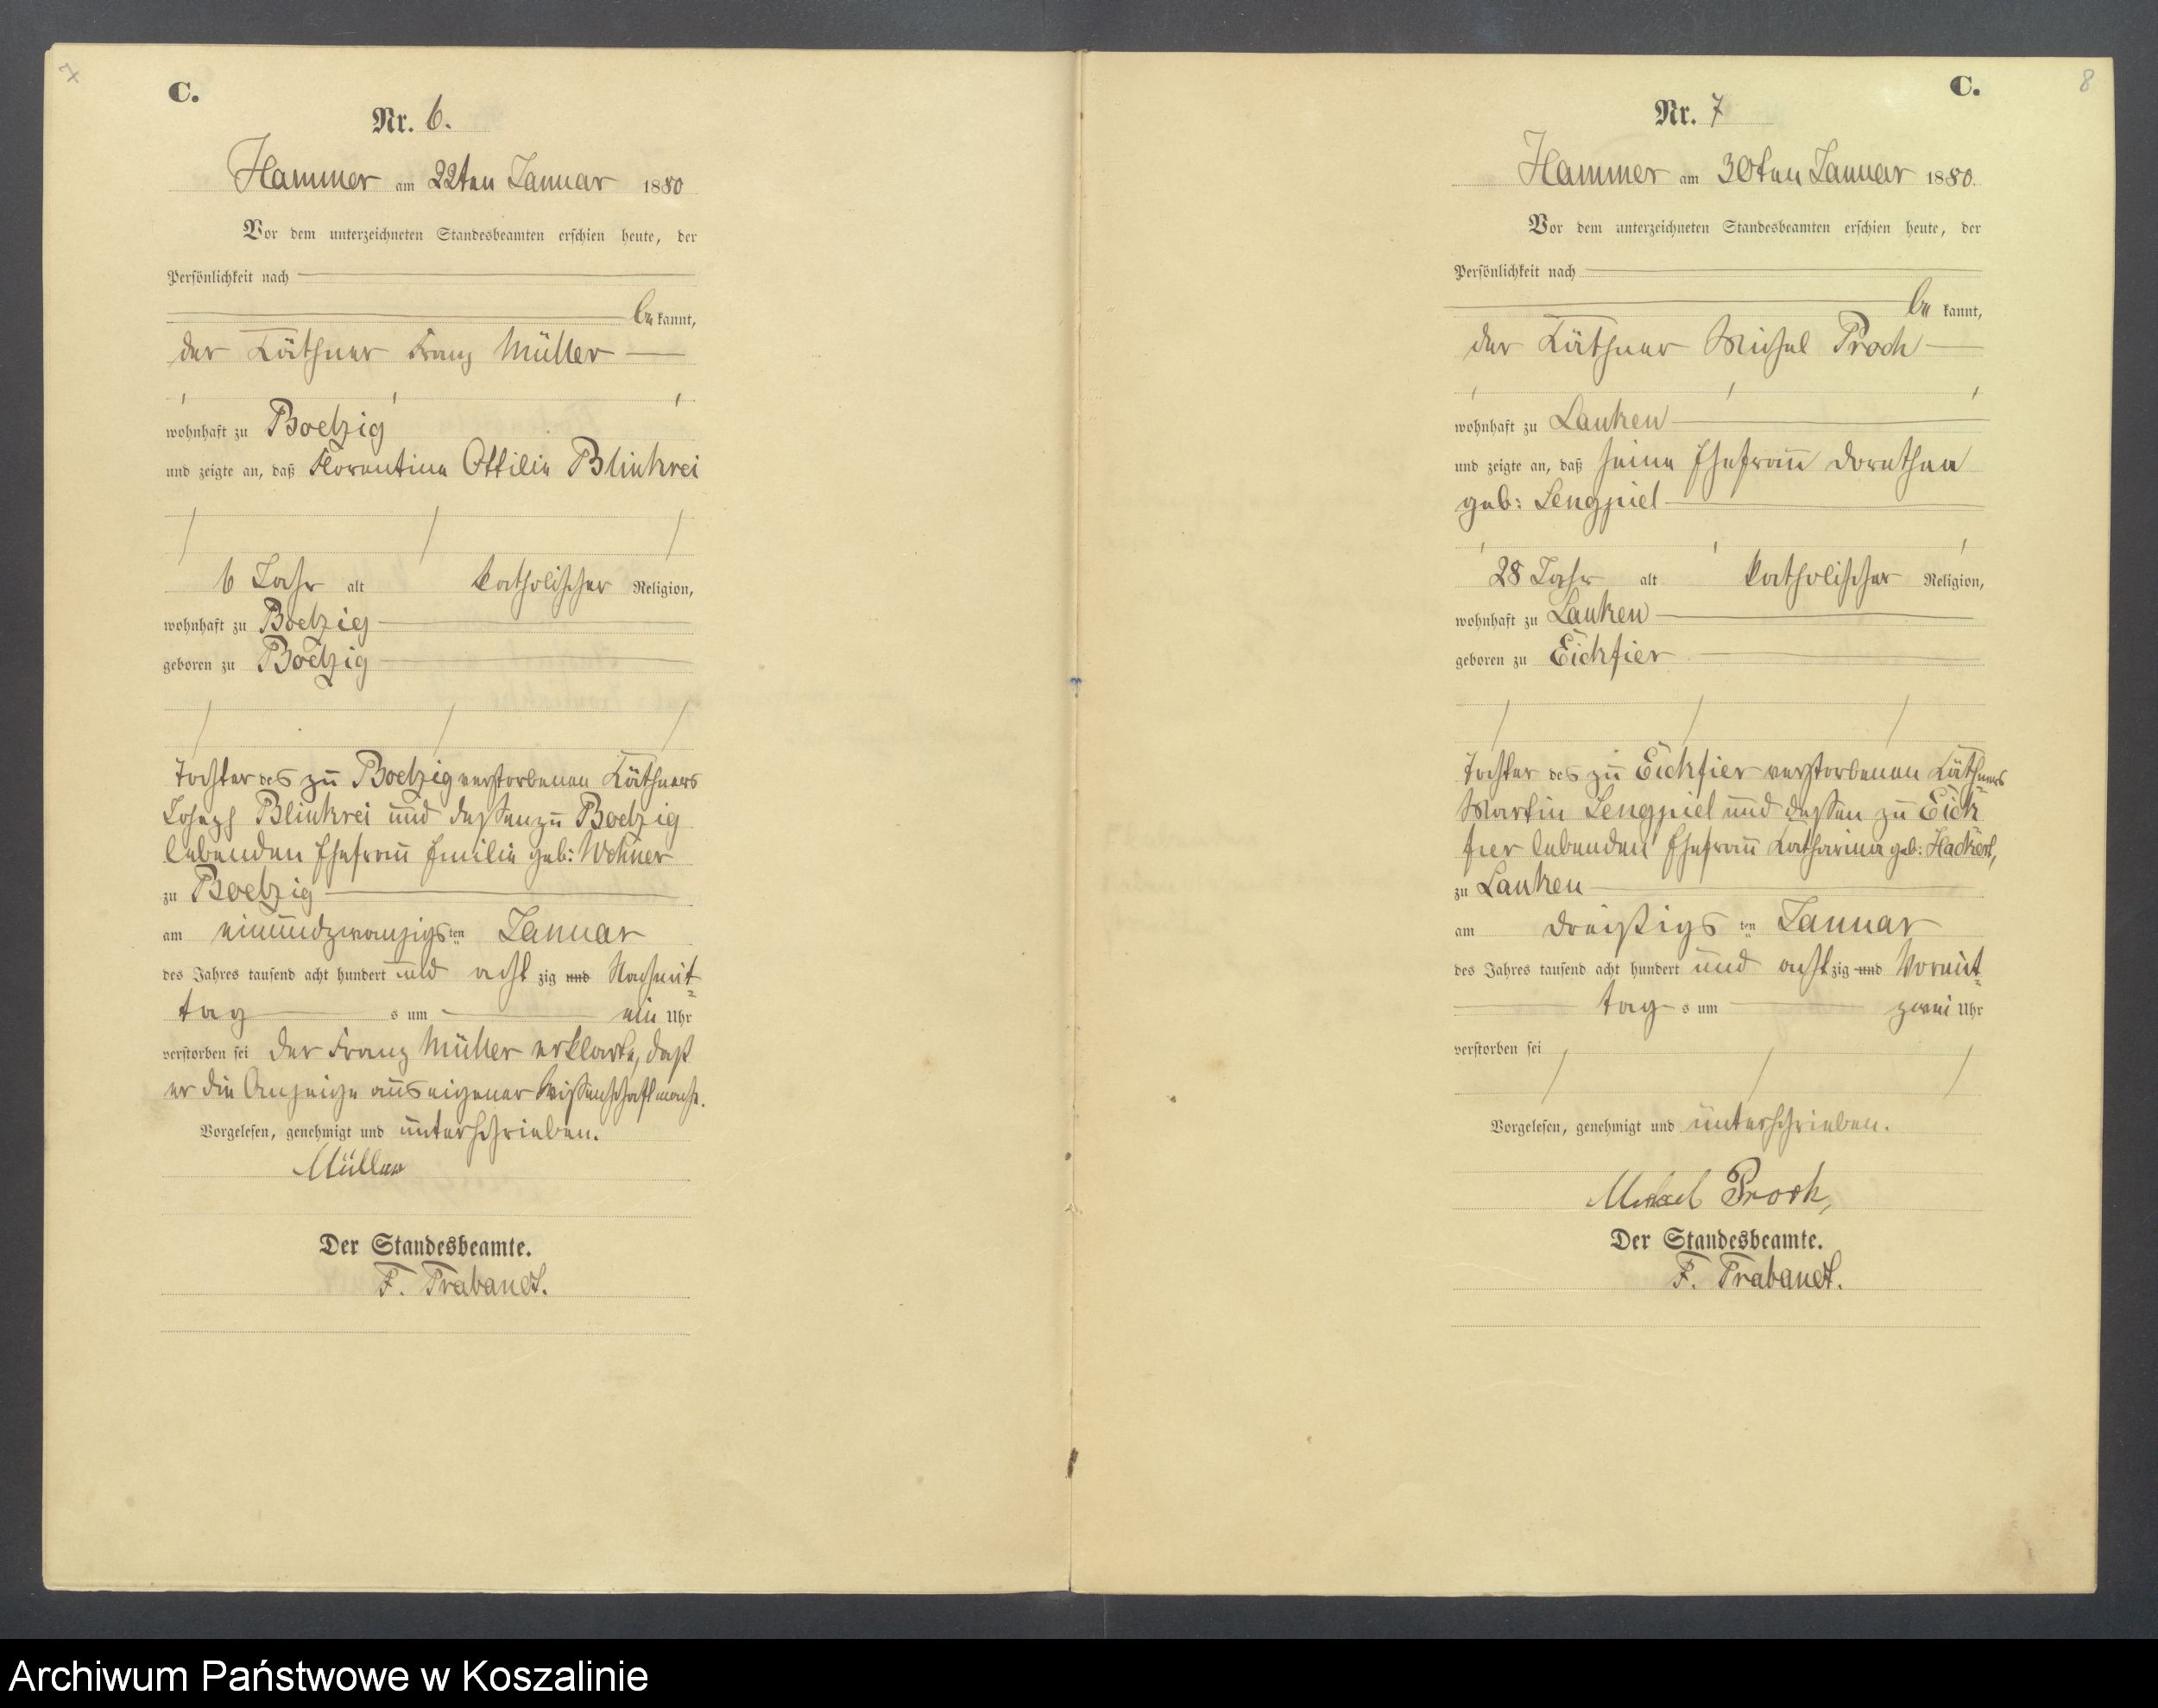 7
C.
Nr. 6.
Hammer am 22ten Januar 1880
Vor dem unterzeichneten Standesbeamten erschien heute, der
Persönlichkeit nach
be kannt,
der Käthner Franz Müller
wohnhaft zu Boetzig
und zeigte an, daß Florentine Ottilie Blinkrei
6 Jahr alt katholischer Religion,
wohnhaft zu Boetzig
geboren zu Boetzig
Tochter des zu Boetzig verstorbenen Käthners
Joseph Blinkrei und dessen zu Boetzig
lebenden Ehefrau Emilie geb: Wehner
zu Boetzig
am einundzwanzigs ten Januar
des Jahres tausend acht hundert und acht zig und Nachmit=
tag s um ein Uhr
verstorben sei der Franz Müller erklärte, daß
er die Anzeige aus eigener Wissenschaft mache.
Vorgelesen, genehmigt und unterschrieben.
Müller
Der Standesbeamte.
F. Trabandt.
8
C.
Nr. 7
Hammer am 30ten Januar 1880.
Vor dem unterzeichneten Standesbeamten erschien heute, der
Persönlichkeit nach
be kannt,
der Käthner Michel Proch
wohnhaft zu Lanken
und zeigte an, daß seine Ehefrau Dorothea
geb: Lengpiel
28 Jahr alt katholischer Religion,
wohnhaft zu Lanken
geboren zu Eickfier
Tochter des zu Eickfier verstorbenen Käthners
Martin Lengpiel und dessen zu Eick
fier lebenden Ehefrau Katharina geb: Hackert,
zu Lanken
am dreißigs ten Januar
des Jahres tausend acht hundert und acht zig und Vormit=
tag s um zwei Uhr
verstorben sei
Vorgelesen, genehmigt und unterschrieben.
Michael Proch,
Der Standesbeamte.
F. Trabandt.
Archiwum Państwowe w Koszalinie